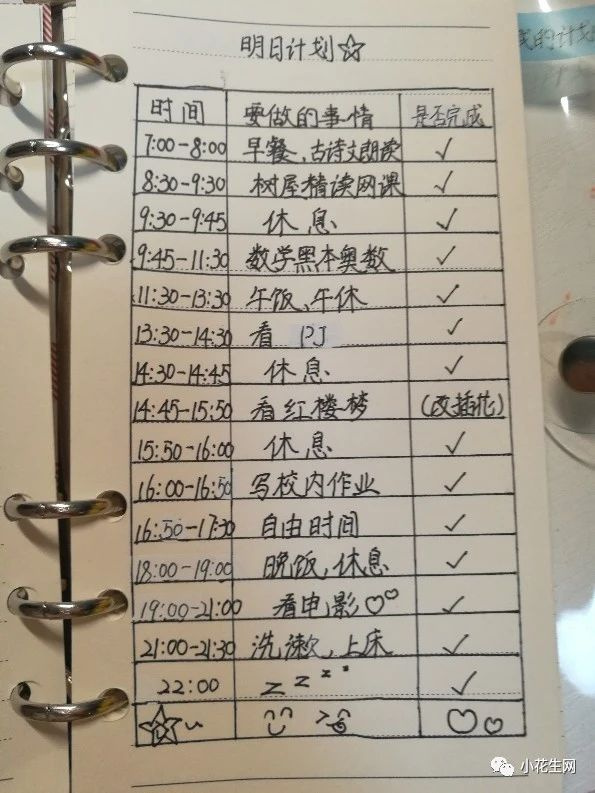 我的计划
明日计划
时间 要做的事情 是否完成
7:00-8:00 早餐、古诗文朗读 ✓
8:30-9:30 树屋精读网课 ✓
9:30-9:45 休息 ✓
9:45-11:30 数学黑本奥数 ✓
11:30-13:30 午饭、午休 ✓
13:30-14:30 看 PJ ✓
14:30-14:45 休息 ✓
14:45-15:50 看红楼梦 (改插花)
15:50-16:00 休息 ✓
16:00-16:50 写校内作业 ✓
16:50-17:30 自由时间 ✓
18:00-19:00 晚饭,休息 ✓
19:00-21:00 看电影♡♡ ✓
21:00-21:30 洗漱、上床 ✓
22:00 z z z z ✓
小花生网